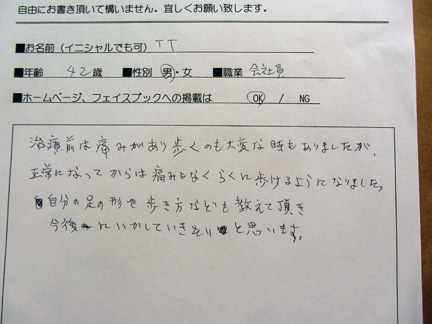 自由にお書き頂いて構いません。宜しくお願い致します。
■お名前（イニシャルでも可） TT
■年齢 42歳 ■性別 男・女 ■職業 会社員
■ホームページ、フェイスブックへの掲載は OK / NG
治療前は痛みがあり歩くのも大変な時もありましたが、
正常になってからは痛みもなくらくに歩けるようになりました。
自分の足の形や歩き方なども教えて頂き
今後にいかしていきたいと思います。